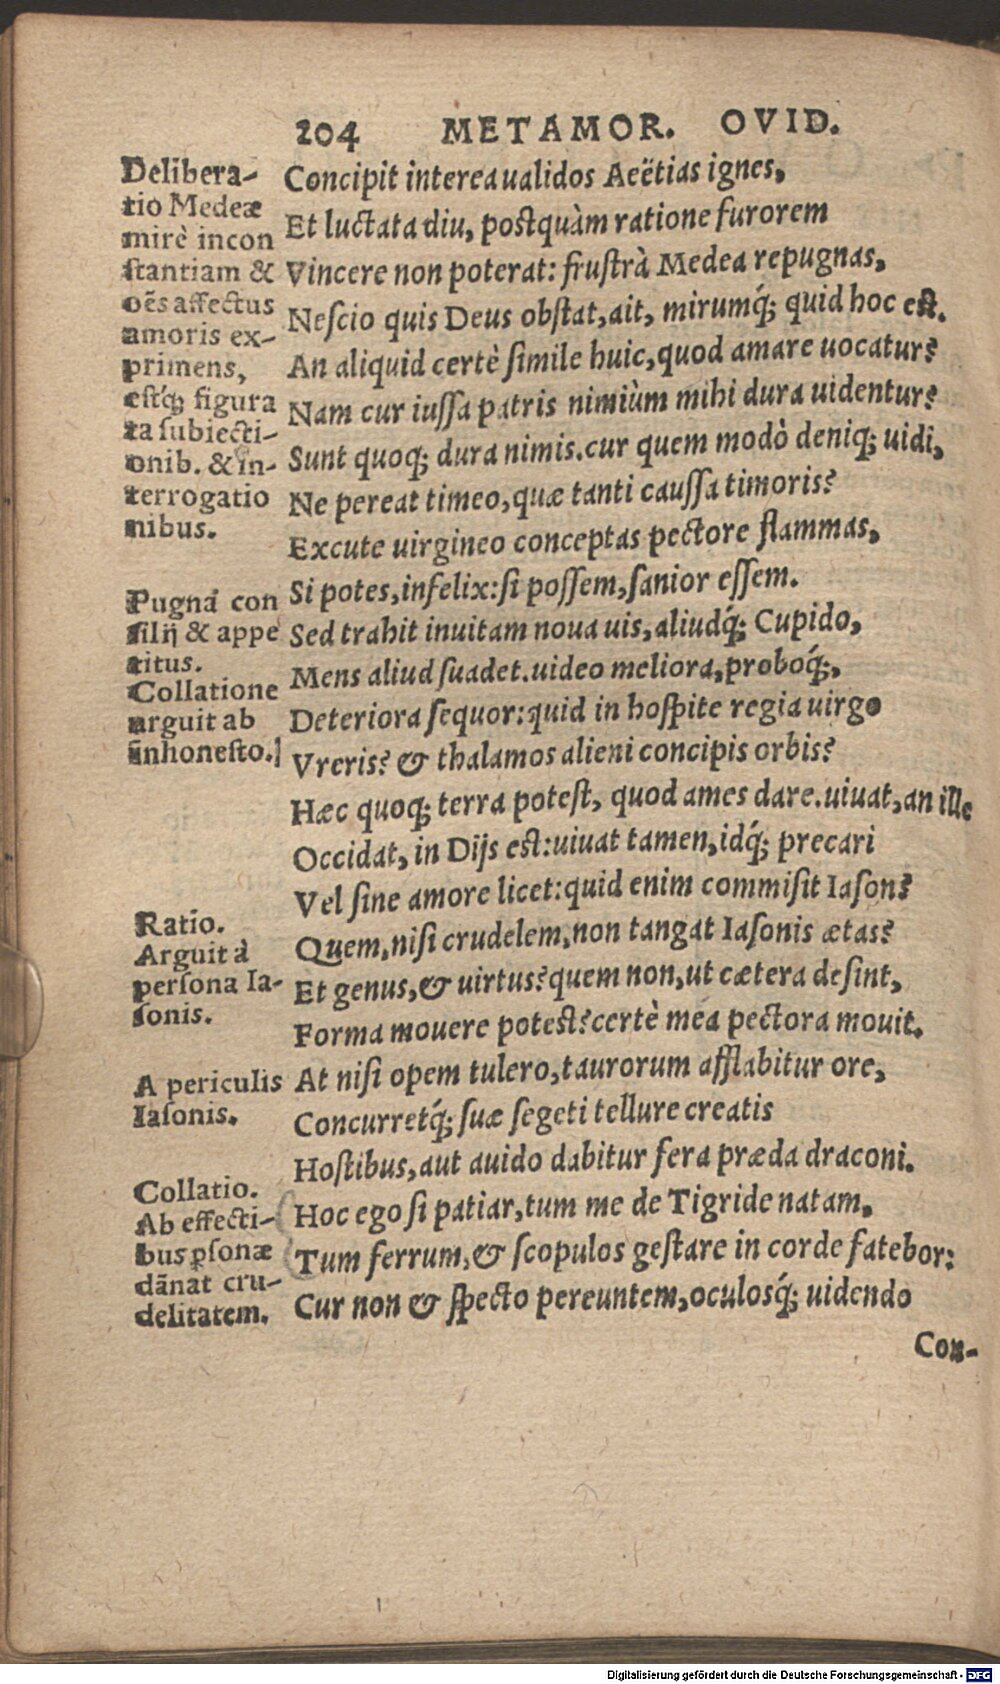 204 METAMOR. OVID.
Delibera-
tio Medeæ
mirè incon
stantiam &
oēs affectus
amoris ex-
primens,
estq́; figura
ta subiecti-
onib. & in-
terrogatio
nibus.
Pugnā con
silij & appe
titus.
Collatione
arguit ab
inhonesto.]
Ratio.
Arguit à
persona Ia-
sonis.
A periculis
Iasonis.
Collatio.
Ab effecti-
bus ꝑsonæ
dānat cru-
delitatem.
Concipit interea ualidos Aeëtias ignes,
Et luctata diu, postquàm ratione furorem
Vincere non poterat: frustrà Medea repugnas,
Nescio quis Deus obstat, ait, mirumq́; quid hoc est.
An aliquid certè simile huic, quod amare uocatur?
Nam cur iussa patris nimiùm mihi dura uidentur?
Sunt quoq; dura nimis. cur quem modò deniq; uidi,
Ne pereat timeo, quæ tanti caussa timoris?
Excute uirgineo conceptas pectore flammas,
Si potes, infelix: si possem, sanior essem.
Sed trahit inuitam noua uis, aliudq́; Cupido,
Mens aliud suadet. uideo meliora, proboq́;,
Deteriora sequor: quid in hospite regia uirgo
Vreris? & thalamos alieni concipis orbis?
Hæc quoq; terra potest, quod ames dare. uiuat, an ille
Occidat, in Dijs est: uiuat tamen, idq́; precari
Vel sine amore licet: quid enim commisit Iason?
Quem, nisi crudelem, non tangat Iasonis ætas?
Et genus, & uirtus? quem non, ut cætera desint,
Forma mouere potest? certè mea pectora mouit.
At nisi opem tulero, taurorum afflabitur ore,
Concurretq́; suæ segeti tellure creatis
Hostibus, aut auido dabitur fera præda draconi.
Hoc ego si patiar, tum me de Tigride natam,
Tum ferrum, & scopulos gestare in corde fatebor:
Cur non & specto pereuntem, oculosq́; uidendo
Con-
Digitalisierung gefördert durch die Deutsche Forschungsgemeinschaft - DFG